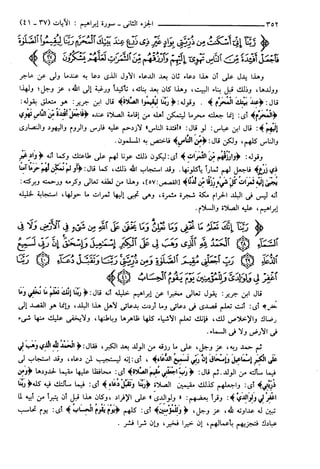 ٣٥٢ الجزء الثانى - سورة إبراهيم : الآيات (٣٧ - ٤١)
رَّبَّنَا إِنِّي أَسْكَنتُ مِن ذُرِّيَّتِي بِوَادٍ غَيْرِ ذِي زَرْعٍ عِندَ بَيْتِكَ الْمُحَرَّمِ رَبَّنَا لِيُقِيمُوا الصَّلَوٰةَ
فَاجْعَلْ أَفْئِدَةً مِّنَ النَّاسِ تَهْوِي إِلَيْهِمْ وَارْزُقْهُم مِّنَ الثَّمَرَاتِ لَعَلَّهُمْ يَشْكُرُونَ
وهذا يدل على أن هذا دعاء ثان بعد الدعاء الأول الذى دعا به عندما ولى عن هاجر
وولدها، وذلك قبل بناء البيت، وهذا كان بعد بنائه، تأكيداً ورغبة إلى الله، عز وجل؛ ولهذا
قال: ﴿عِندَ بَيْتِكَ الْمُحَرَّمِ﴾ . وقوله: ﴿رَبَّنَا لِيُقِيمُوا الصَّلَاةَ﴾ قال ابن جرير: هو متعلق بقوله:
﴿الْمُحَرَّمِ﴾ أى: إنما جعلته محرما ليتمكن أهله من إقامة الصلاة عنده ﴿فَاجْعَلْ أَفْئِدَةً مِّنَ النَّاسِ تَهْوِي
إِلَيْهِمْ﴾: قال ابن عباس: لو قال: "أفئدة الناس" لازدحم عليه فارس والروم واليهود والنصارى
والناس كلهم، ولكن قال: ﴿مِّنَ النَّاسِ﴾ فاختص به المسلمون.
وقوله: ﴿وَارْزُقْهُم مِّنَ الثَّمَرَاتِ﴾ أى: ليكون ذلك عونا لهم على طاعتك وكما أنه ﴿وَادٍ غَيْرِ
ذِي زَرْعٍ﴾ فاجعل لهم ثماراً يأكلونها. وقد استجاب الله ذلك، كما قال: ﴿أَوَلَمْ نُمَكِّن لَّهُمْ حَرَمًا آمِنًا
يُجْبَىٰ إِلَيْهِ ثَمَرَاتُ كُلِّ شَيْءٍ رِّزْقًا مِّن لَّدُنَّا﴾ [القصص: ٥٧]، وهذا من لطفه تعالى وكرمه ورحمته وبركته:
أنه ليس فى البلد الحرام مكة شجرة مثمرة، وهى تجبى إليها ثمرات ما حولها، استجابة لخليله
إبراهيم، عليه الصلاة والسلام.
رَبَّنَا إِنَّكَ تَعْلَمُ مَا نُخْفِي وَمَا نُعْلِنُ وَمَا يَخْفَىٰ عَلَى اللَّهِ مِن شَيْءٍ فِي الْأَرْضِ وَلَا فِي
السَّمَاءِ الْحَمْدُ لِلَّهِ الَّذِي وَهَبَ لِي عَلَى الْكِبَرِ إِسْمَاعِيلَ وَإِسْحَاقَ إِنَّ رَبِّي لَسَمِيعُ
الدُّعَاءِ رَبِّ اجْعَلْنِي مُقِيمَ الصَّلَوٰةِ وَمِن ذُرِّيَّتِي رَبَّنَا وَتَقَبَّلْ دُعَاءِ رَبَّنَا
اغْفِرْ لِي وَلِوَالِدَيَّ وَلِلْمُؤْمِنِينَ يَوْمَ يَقُومُ الْحِسَابُ
قال ابن جرير: يقول تعالى مخبرا عن إبراهيم خليله أنه قال: ﴿رَبَّنَا إِنَّكَ تَعْلَمُ مَا نُخْفِي وَمَا
نُعْلِنُ﴾ أى: أنت تعلم قصدى فى دعائى وما أردت بدعائى لأهل هذا البلد، وإنما هو القصد إلى
رضاك والإخلاص لك، فإنك تعلم الأشياء كلها ظاهرها وباطنها، ولا يخفى عليك منها شىء
فى الأرض ولا فى السماء.
ثم حمد ربه، عز وجل، على ما رزقه من الولد بعد الكبر، فقال: ﴿الْحَمْدُ لِلَّهِ الَّذِي وَهَبَ لِي
عَلَى الْكِبَرِ إِسْمَاعِيلَ وَإِسْحَاقَ إِنَّ رَبِّي لَسَمِيعُ الدُّعَاءِ﴾، أى: إنه ليستجيب لمن دعاه، وقد استجاب لى
فيما سألته من الولد. ثم قال: ﴿رَبِّ اجْعَلْنِي مُقِيمَ الصَّلَاةِ﴾ أى: محافظا عليها مقيما لحدودها ﴿وَمِن
ذُرِّيَّتِي﴾ أى: واجعلهم كذلك مقيمين الصلاة ﴿رَبَّنَا وَتَقَبَّلْ دُعَاءِ﴾ أى: فيما سألتك فيه كله ﴿رَبَّنَا
اغْفِرْ لِي وَلِوَالِدَيَّ﴾: وقرأ بعضهم: "ولوالدى" على الإفراد، وكان هذا قبل أن يتبرأ من أبيه لما
تبين له عداوته لله، عز وجل، ﴿وَلِلْمُؤْمِنِينَ﴾ أى: كلهم ﴿يَوْمَ يَقُومُ الْحِسَابُ﴾ أى: يوم تحاسب
عبادك فتجزيهم بأعمالهم، إن خيرا فخير، وإن شرا فشر .